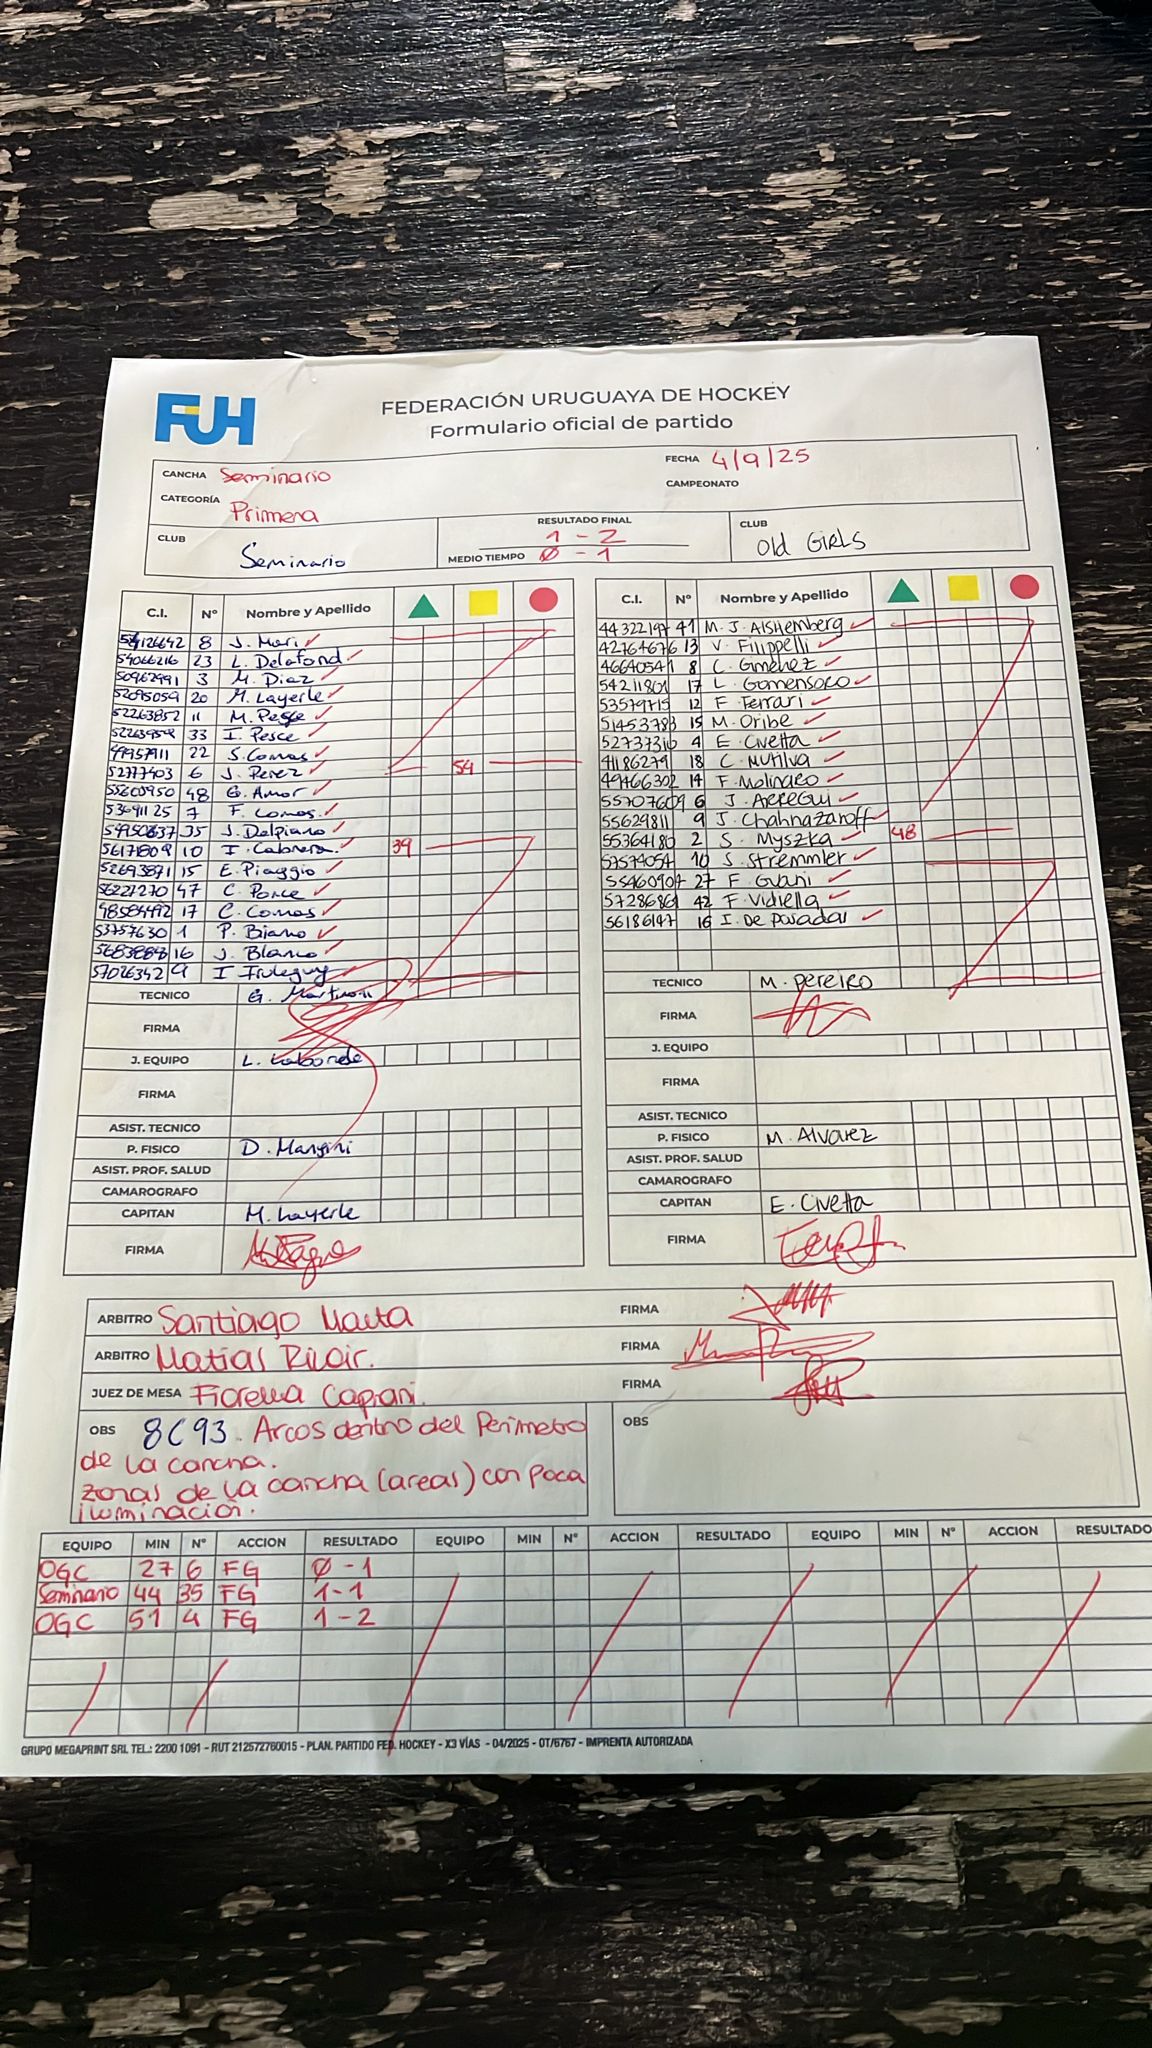 FUH
FEDERACIÓN URUGUAYA DE HOCKEY
Formulario oficial de partido
CANCHA Seminario
FECHA 4/9/25
CATEGORÍA Primera
CAMPEONATO
CLUB Seminario
RESULTADO FINAL 1 - 2
MEDIO TIEMPO 0 - 1
CLUB Old GIRLS
C.I. Nº Nombre y Apellido
8 J. Mari
54066216 23 L. Delafond
50962991 3 M. Diaz
52095059 20 M. Layerle
52263852 11 M. Pesce
33 I. Pesce
49957911 22 S. Comas
52777403 6 J. Perez 54
55605950 48 G. Amor
53691125 7 F. Comas
54950637 35 J. Delpiano
56171809 10 I. Cabrera 39
52693871 15 E. Piaggio
56227270 47 C. Ponce
48584492 17 C. Comas
53757630 1 P. Biano
16 J. Blanco
57026342 9 I
TECNICO G.
FIRMA
J. EQUIPO L. Laborde
FIRMA
ASIST. TECNICO
P. FISICO D. Mangini
ASIST. PROF. SALUD
CAMAROGRAFO
CAPITAN M. Layerle
FIRMA
C.I. Nº Nombre y Apellido
44322197 41 M. J. Alshemberg
42764676 13 V. Filippelli
46640541 8 C. Gimenez
54211801 17 L. Gomensoro
53579715 12 F. Ferrari
51453783 15 M. Oribe
52737316 4 E. Civetta
41186279 18 C. Mutilva
49466302 14 F. Molinaro
55707609 6 J. Arregui
55629811 9 J. Chahnazaroff
55364180 2 S. Myszka 48
57574054 10 S. Stremmler
55460904 27 F. Gvani
5728686 42 F. Vidiella
56186197 16 I. De Posadas
TECNICO M. Pereiro
FIRMA
J. EQUIPO
FIRMA
ASIST. TECNICO
P. FISICO M. Alvarez
ASIST. PROF. SALUD
CAMAROGRAFO
CAPITAN E. Civetta
FIRMA
ARBITRO Santiago Mauta FIRMA
ARBITRO Matias FIRMA
JUEZ DE MESA Fiorella Caprani. FIRMA
OBS 8C93. Arcos dentro del Perimetro
de la cancha.
zonas de la cancha (areas) con poca
iluminación.
OBS
EQUIPO MIN Nº ACCION RESULTADO EQUIPO MIN Nº ACCION RESULTADO EQUIPO MIN Nº ACCION RESULTADO
OGC 27 6 FG 0 - 1
Seminario 44 35 FG 1-1
OGC 51 4 FG 1 - 2
GRUPO MEGAPRINT SRL TEL.: 2200 1091 - RUT 212572760015 - PLAN. PARTIDO FED. HOCKEY - X3 VÍAS - 04/2025 - OT/6767 - IMPRENTA AUTORIZADA